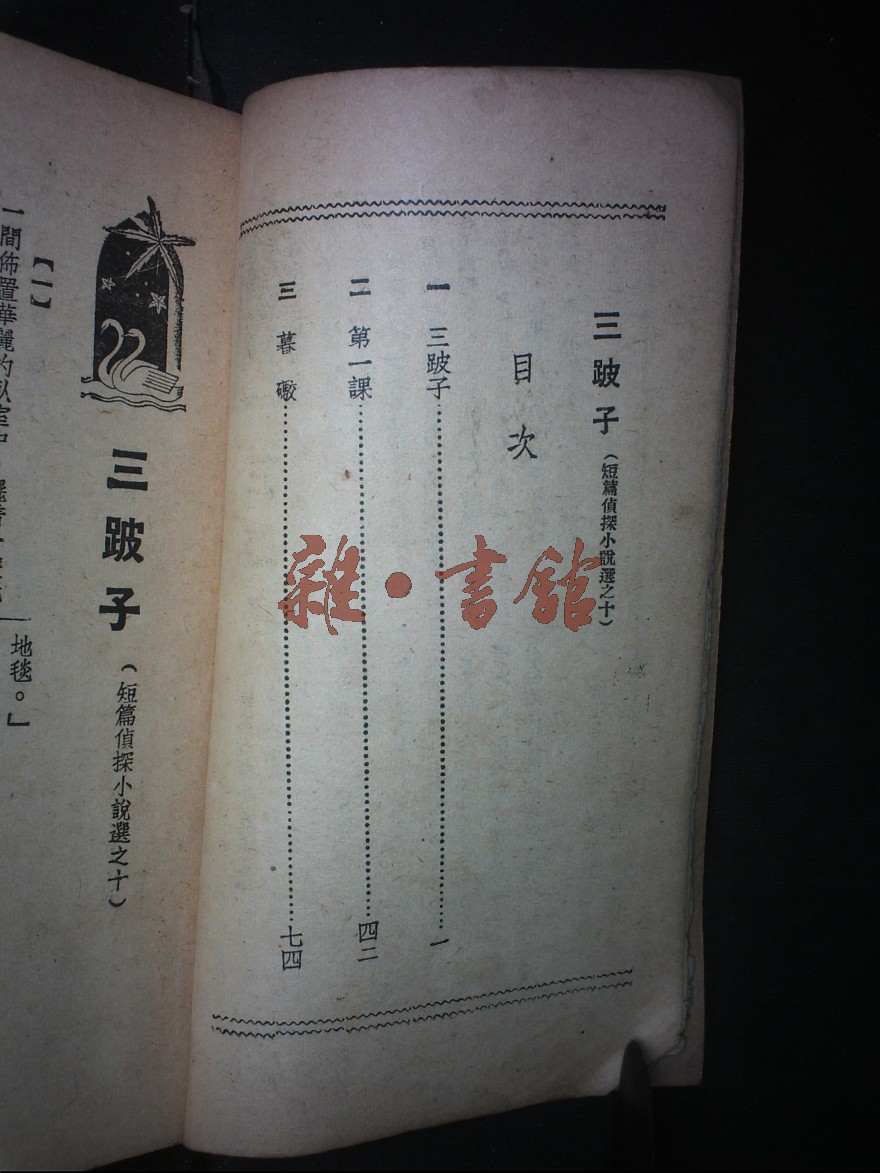 三跛子（短篇偵探小說選之十）
目次
一 三跛子 一
二 第一課 四二
三 暮礮 七四
雜·書館
三跛子
（短篇偵探小說選之十）
【一】
一間佈置華麗的臥室中
地毯。」